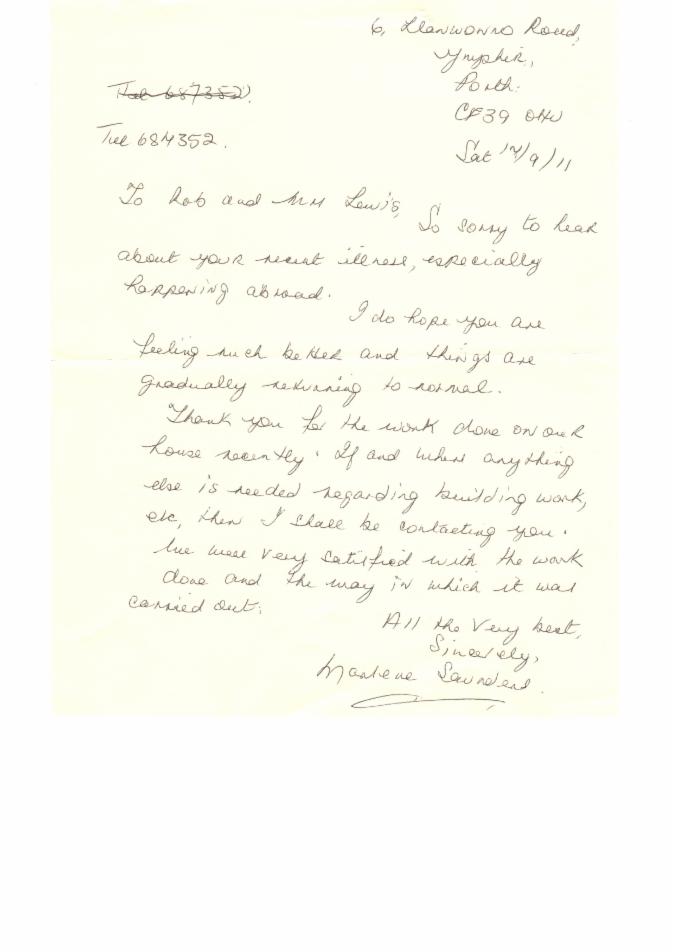 6, Llanwonno Road,
Ynyshir,
Porth.
Tel 687352.
CF39 0HU
Tel 684352.
Sat 17/9/11
To Rob and Mrs Lewis,
So sorry to hear
about your recent illness, especially
happening abroad.
I do hope you are
feeling much better and things are
gradually returning to normal.
Thank you for the work done on our
house recently. If and when anything
else is needed regarding building work,
etc, then I shall be contacting you.
We were very satisfied with the work
done and the way in which it was
carried out.
All the very best,
Sincerely,
Marlene Saunders.